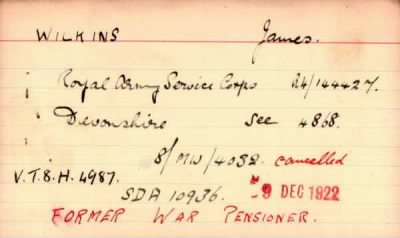 WILKINS James.
Royal Army Service Corps R4/144427.
Devonshire See 4868.
8/MW/4032. cancelled
V.T.8.H. 4987.
SDA 10936. 9 DEC 1922
FORMER WAR PENSIONER.